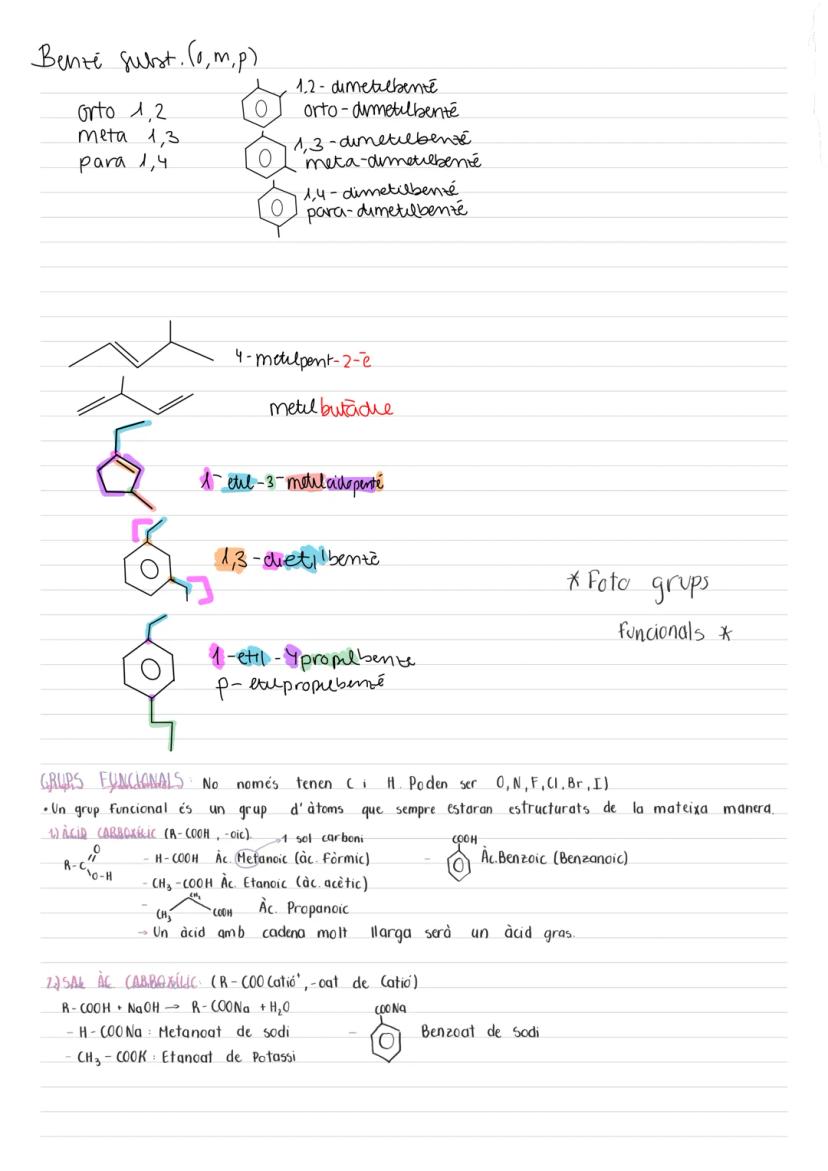 Benzé subst. (o, m, p)
orto 1,2
meta 1,3
para 1,4
1,2 - dimetilbenzé
orto - dimetilbenzé
1,3 - dimetilbenzé
meta - dimetilbenzé
1,4 - dimetilbenzé
para - dimetilbenzé
4 - metilpent-2-è
metilbutàdie
1- etil - 3 - metilciclopenté
1,3 - dietilbenzè
* Foto grups
funcionals *
1 - etil - 4 propilbenze
p - etilpropilbenzé
GRUPS FUNCIONALS: No només tenen C i H. Poden ser O, N, F, Cl, Br, I)
• Un grup funcional és un grup d'àtoms que sempre estaran estructurats de la mateixa manera.
1) ÀCID CARBOXÍLIC (R-COOH, -oic).
→ 1 sol carboni
R-C
O
O-H
- H-COOH Àc. Metanoic (àc. Fòrmic)
- CH3 -COOH Àc. Etanoic (àc. acètic)
- CH3 CH2 COOH Àc. Propanoic
→ Un àcid amb cadena molt llarga serà un àcid gras.
- COOH Àc. Benzoic (Benzanoic)
2) SAL ÀC CARBOXÍLIC: (R - COO Catió+, -oat de Catió)
R - COOH + NaOH → R - COONa + H2O
- H - COONa : Metanoat de sodi
- CH3 - COOK : Etanoat de Potassi
- COONa Benzoat de Sodi